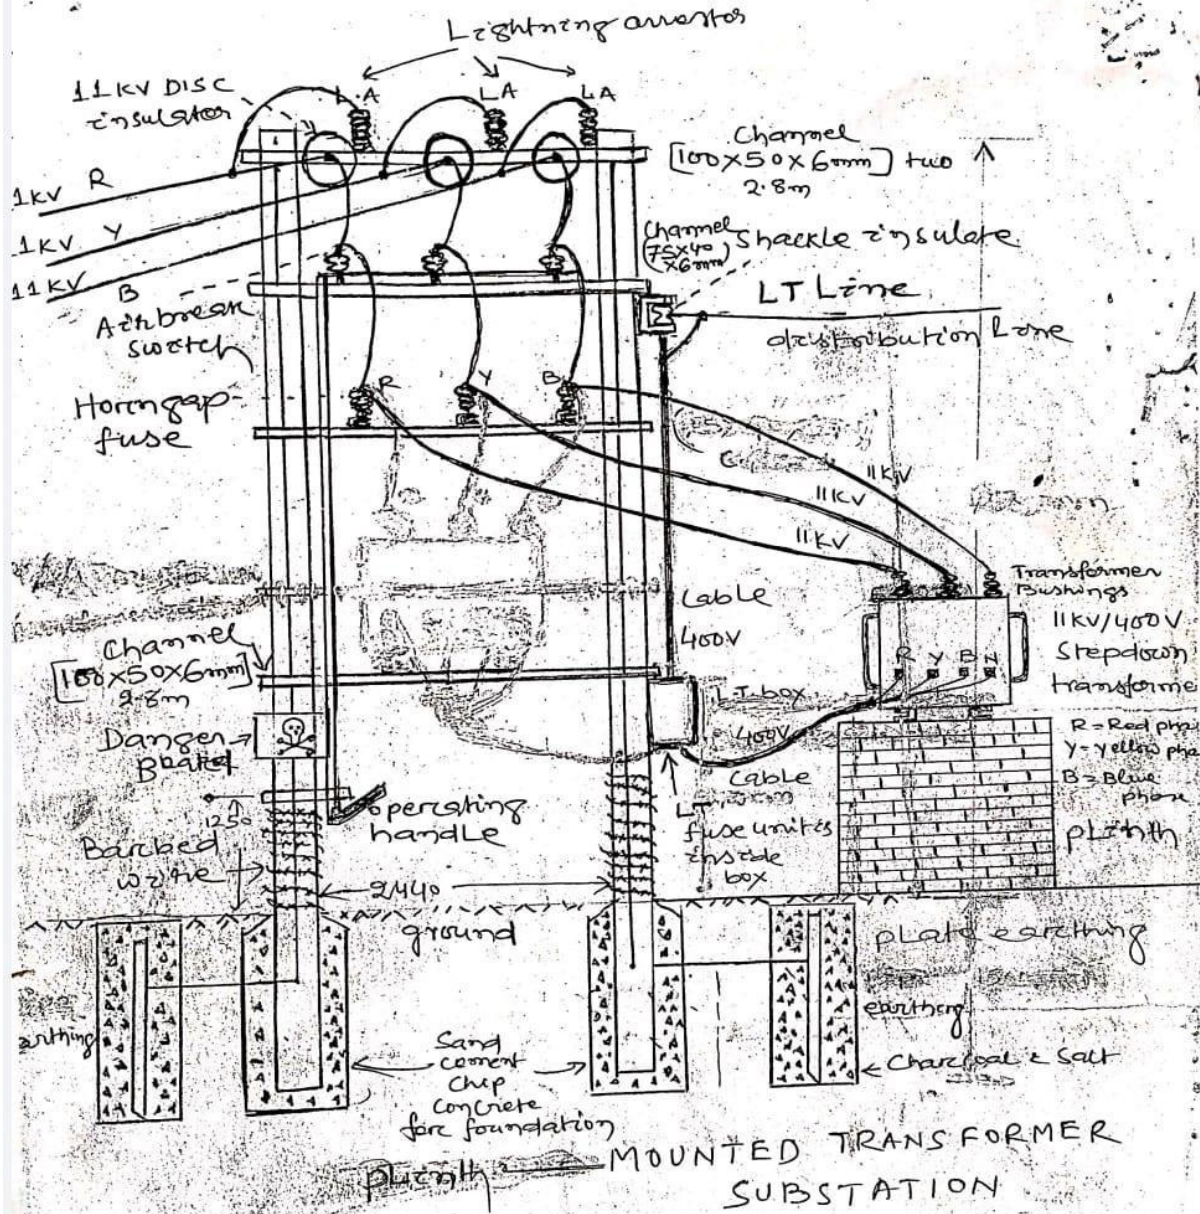 Lightning arrestor
11KV DISC
insulator
L.A
LA
LA
Channel
[100X50X6mm] two
2.8m
1KV R
1KV Y
11KV B
Channel
(75X40
X6mm)
Shackle insulate
LT Line
distribution Line
Airbreak
switch
Horngap
fuse
R
Y
B
11KV
11KV
11KV
Transformer
Bushings
11KV/400V
Stepdown
transforme
R Y B N
Cable
400V
Channel
[100X50X6mm]
2.8m
L.T box
400V
Cable
Danger
Board
R=Red pha
Y=yellow pha
B=Blue
phase
plinth
1250
operating
handle
LT
fuse units
inside
box
Barbed
wire
2440
ground
plate earthing
earthing
arthing
Sand
cement
chip
concrete
for foundation
Charcoal & Salt
plinth MOUNTED TRANSFORMER
SUBSTATION